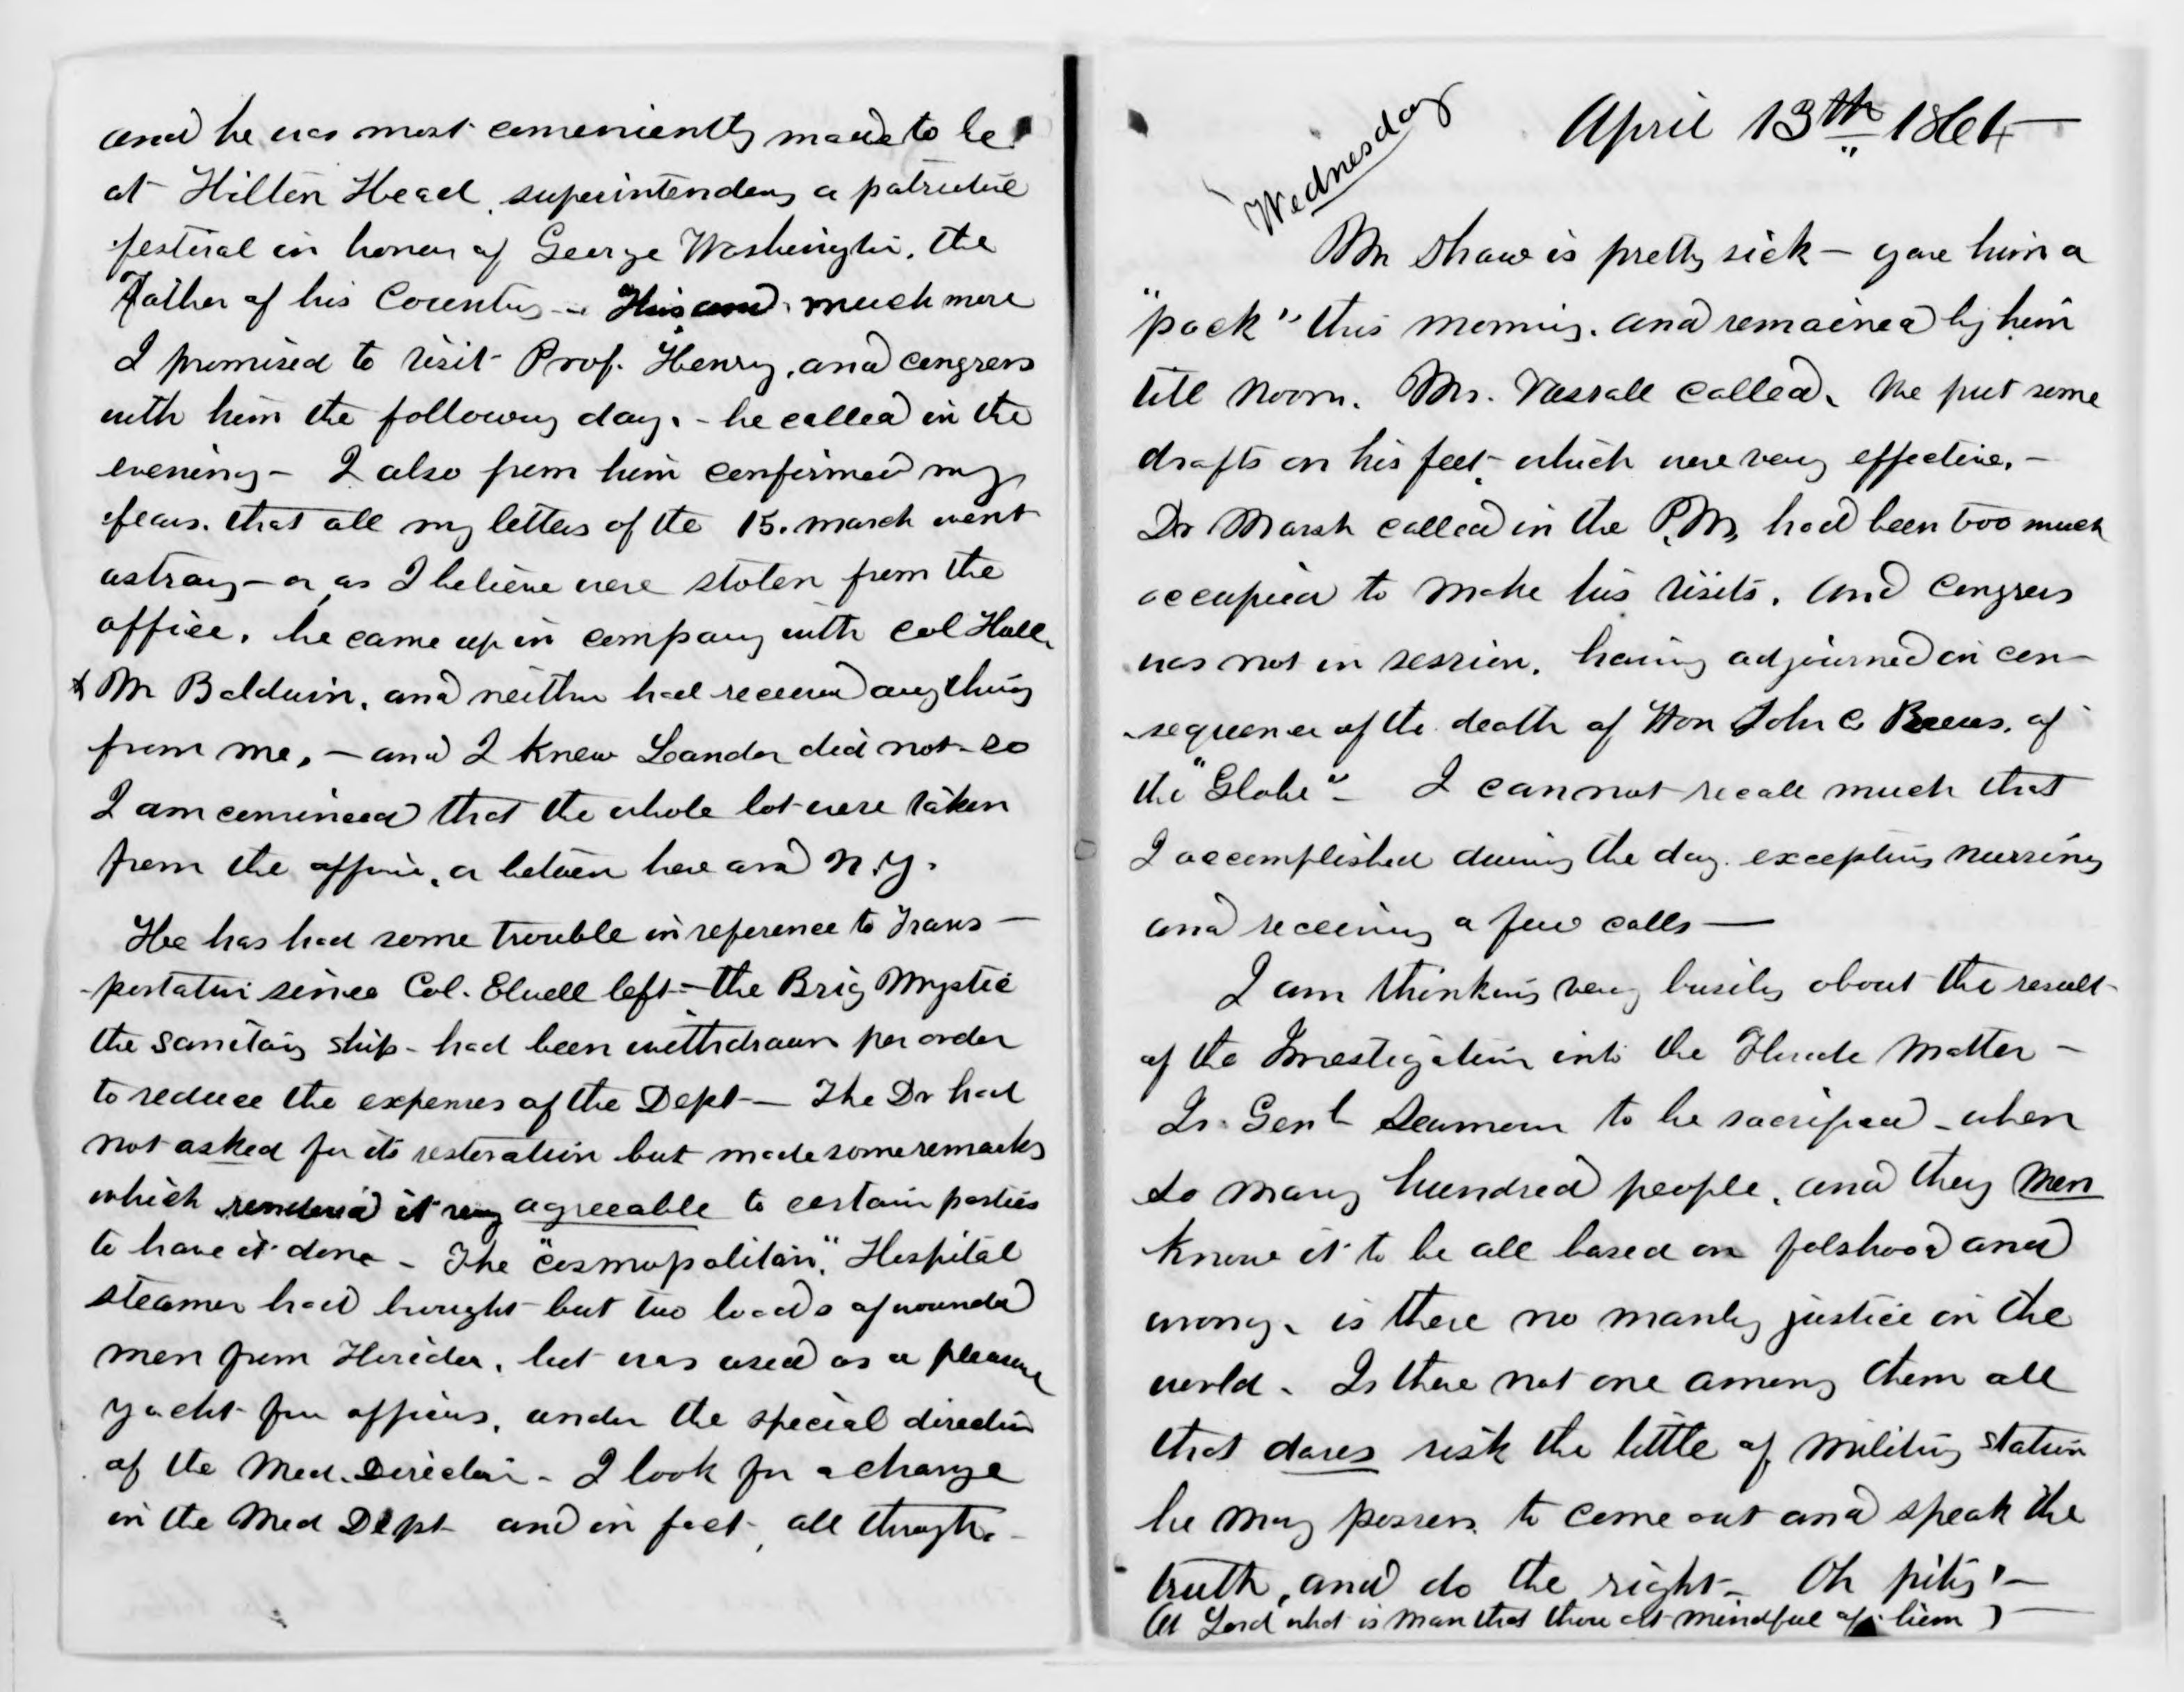 and he was most conveniently made to be
at Hilton Head, superintending a patriotic
festival in honor of George Washington, the
Father of his Country — This and much more
I promised to visit Prof. Henry, and congress
with him the following day. - he called in the
evening - I also from him confirmed my
fears. that all my letters of the 15. march went
astray - or as I believe were stolen from the
office. he came up in company with Col Hall
& Mr Baldwin, and neither had received anything
from me, - and I knew Leander did not - so
I am convinced that the whole lot were taken
from the office, or between here and N.Y.
He has had some trouble in reference to Trans-
-portation since Col. Elwell left - the Brig Mystic
the sanitary ship - had been withdrawn per order
to reduce the expenses of the Dept - The Dr had
not asked for its restoration but made some remarks
which rendered it very agreeable to certain parties
to have it done - The "Cosmopolitan". Hospital
steamer had brought but two loads of wounded
men from Florida, but was used as a pleasure
yacht for officers, under the special direction
of the Med. Director - I look for a change
in the Med Dept and in fact, all through -
Wednesday
April 13th 1864 —
Mr Shaw is pretty sick - gave him a
"pack" this morning. and remained by him
till noon. Mr. Vassall called. We put some
drafts on his feet - which were very effective. -
Dr Marsh called in the P.M, had been too much
occupied to make his visits. and Congress
was not in session. having adjourned in con-
-sequence of the death of Hon John C Rives. of
the "Globe" - I can not recall much that
I accomplished during the day. excepting nursing
and receiving a few calls —
I am thinking very busily about the result
of the Investigation into the Florida Matter -
Is Genl Seymour to be sacrificed - when
so many hundred people, and they men
know it to be all based on falshood and
wrong. is there no manly justice in the
world - Is there not one among them all
that dares risk the little of military station
he may possess to come out and speak the
truth, and do the right - Oh pity! -
(Oh Lord what is man that thou art mindful of him) —